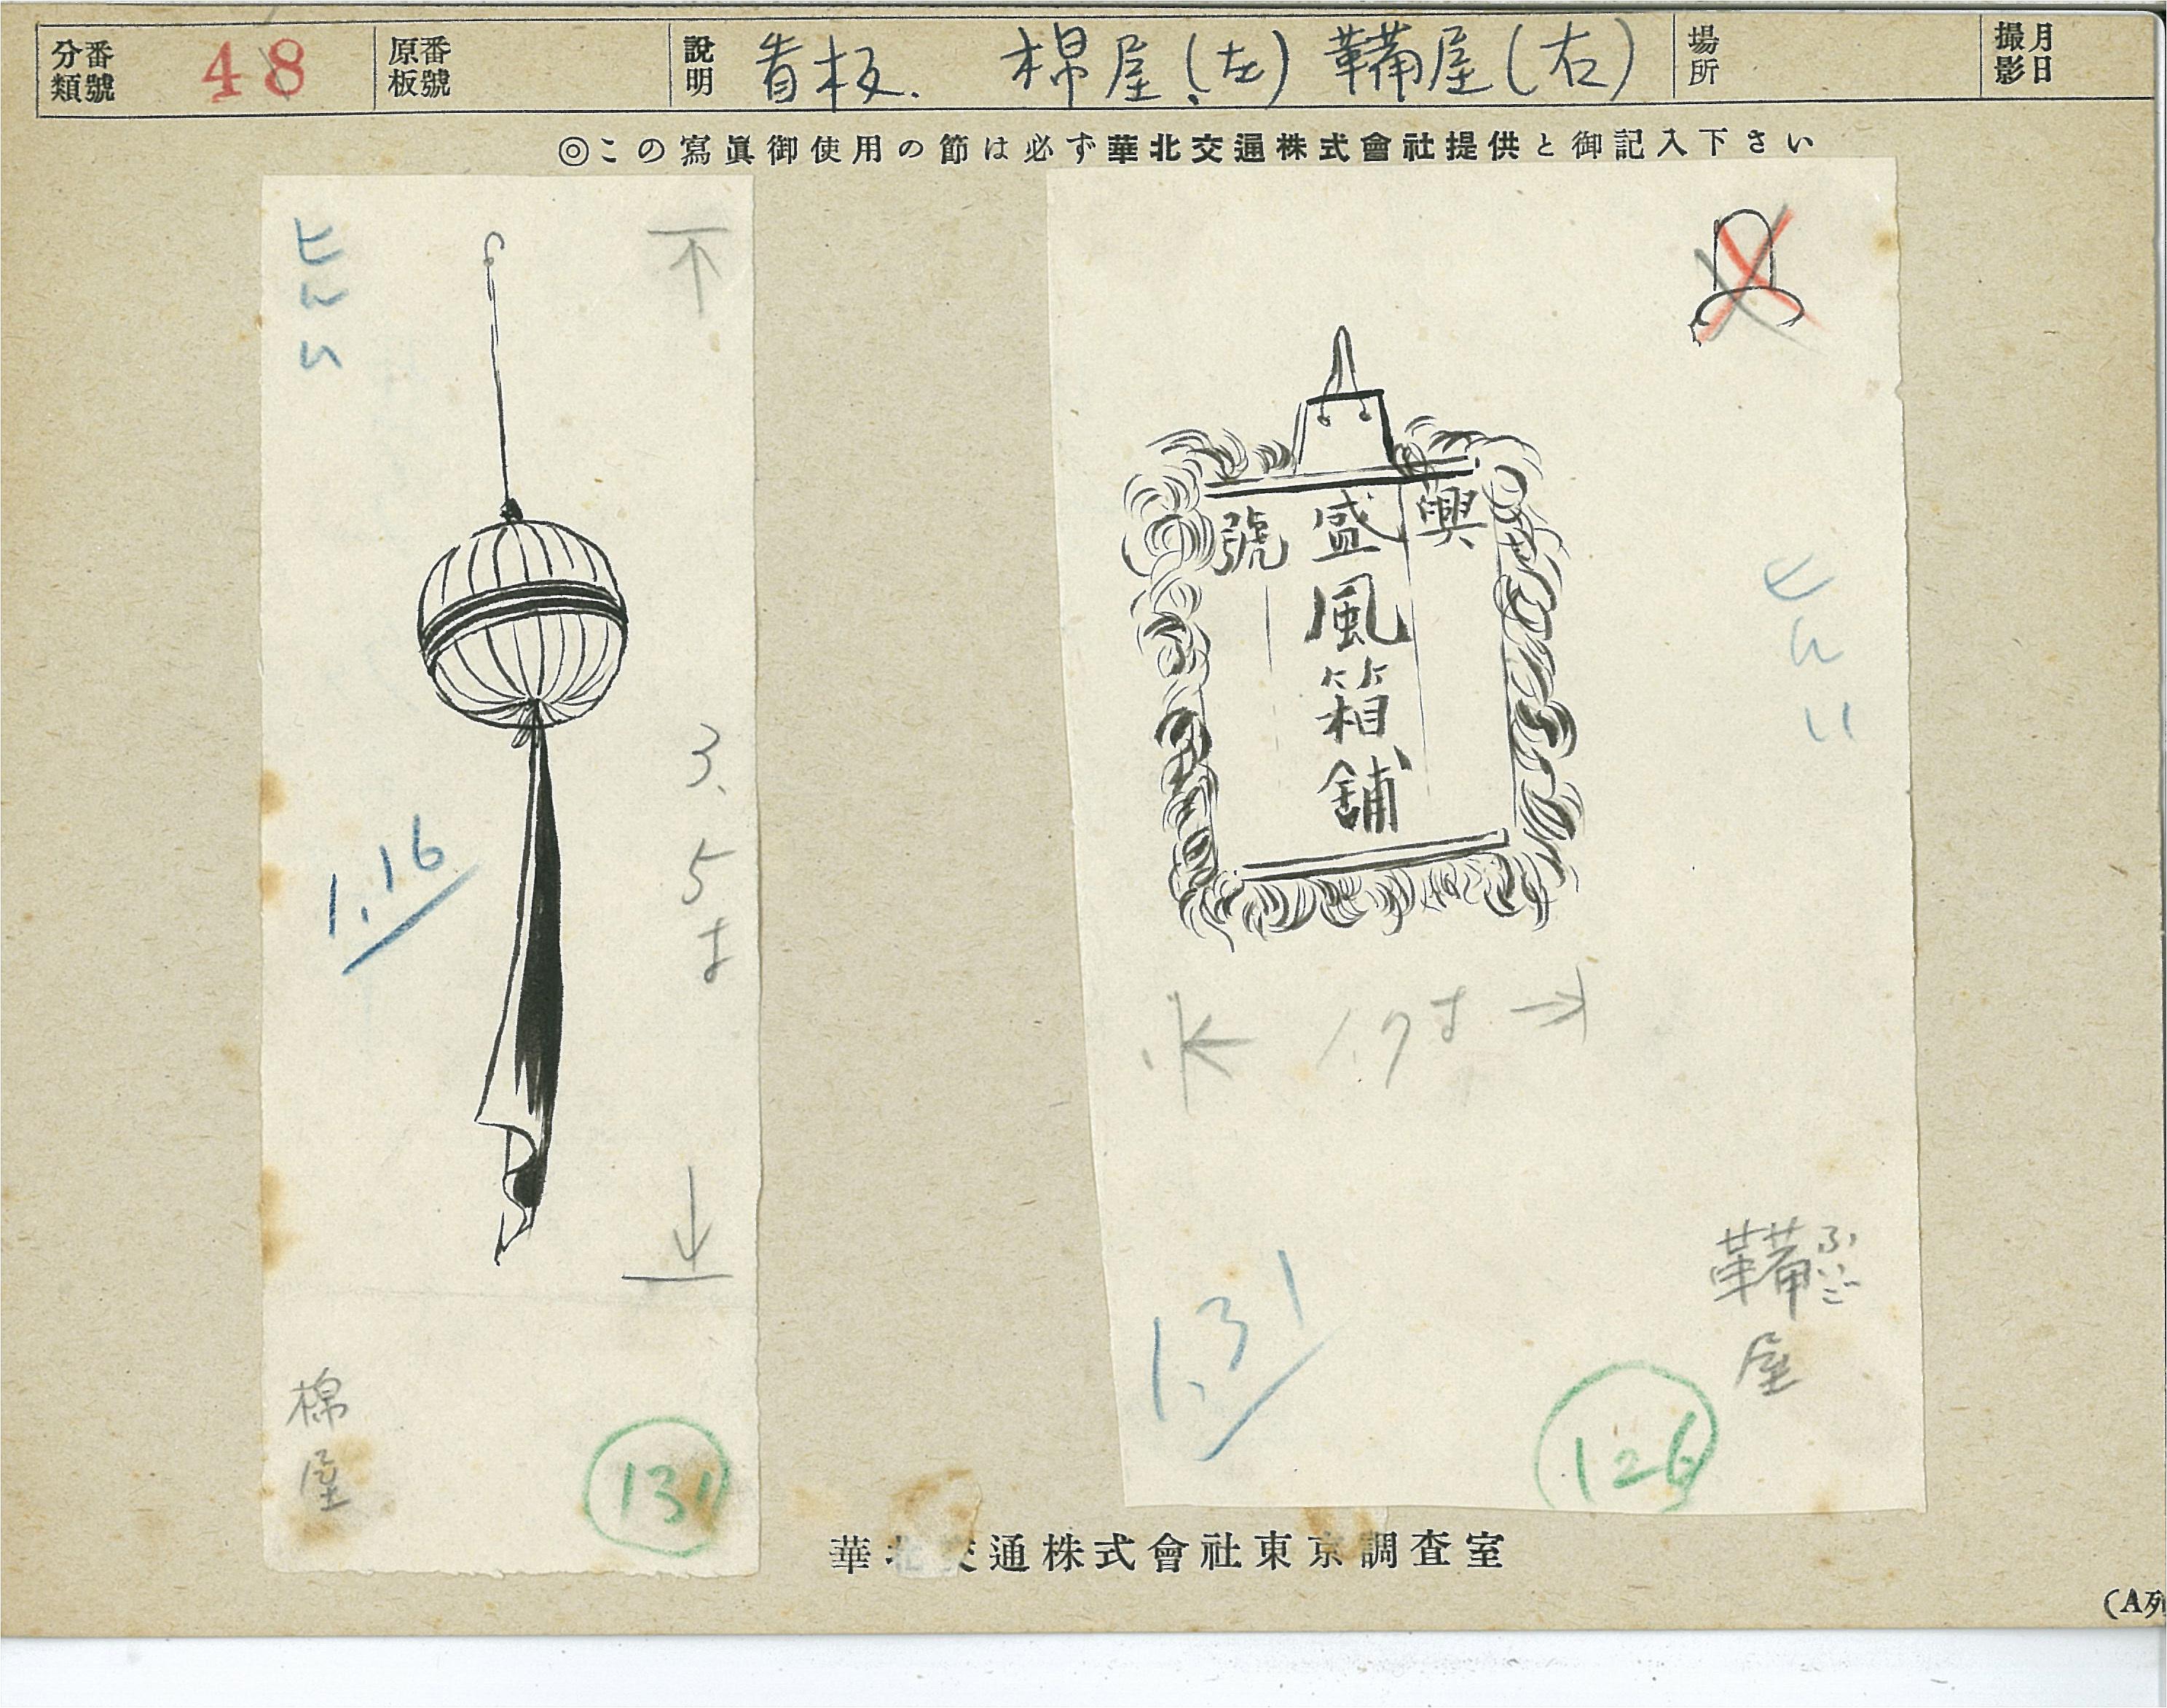 分類番號 48 原板番號 説明 看板. 棉屋(左) 鞴屋(右) 場所 撮影月日
◎この寫眞御使用の節は必ず華北交通株式會社提供と御記入下さい
3.5寸
1.16
棉屋
131
興盛號
風箱舖
1.7寸
1.31
鞴屋
ふいご
126
華北交通株式會社東京調査室
(A列